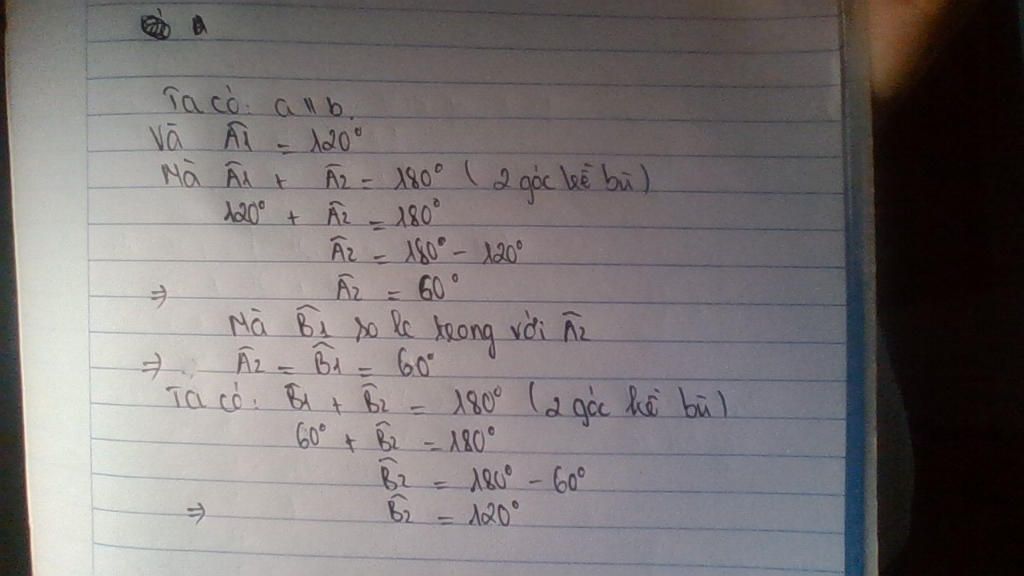 a
Ta có: a // b.
Và Â1 = 120°
Mà Â1 + Â2 = 180° (2 góc kề bù)
120° + Â2 = 180°
Â2 = 180° - 120°
⇒ Â2 = 60°
Mà B̂1 so le trong với Â2
⇒ Â2 = B̂1 = 60°
Ta có: B̂1 + B̂2 = 180° (2 góc kề bù)
60° + B̂2 = 180°
B̂2 = 180° - 60°
⇒ B̂2 = 120°